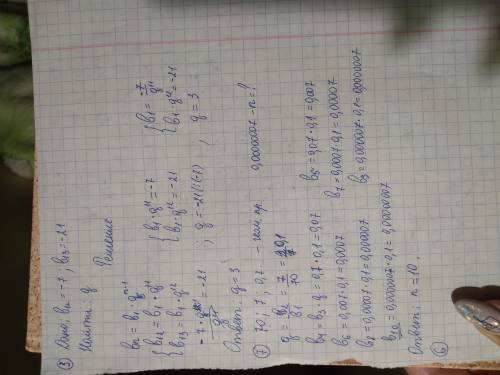 ③ Дано: b₁₂ = -7 ; b₁₃ = -21
Найти: q
Решение
bn = b₁ · qⁿ⁻¹
{ b₁₂ = b₁ · q¹¹ { b₁ · q¹¹ = -7 { b₁ = -7/q¹¹
{ b₁₃ = b₁ · q¹² { b₁ · q¹² = -21 { b₁ · q¹² = -21
-7 · q¹²/q¹¹ = -21 ; q = -21 : (-7) ; q = 3
Ответ: q = 3
⑦ 70 ; 7 ; 0,7 - геом. пр. 0,0000007 - n = ?
q = b₂/b₁ = 7/70 = 0,1
b₄ = b₃ · q = 0,7 · 0,1 = 0,07 b₅ = 0,07 · 0,1 = 0,007
b₆ = 0,007 · 0,1 = 0,0007 b₇ = 0,0007 · 0,1 = 0,00007
b₈ = 0,00007 · 0,1 = 0,000007 b₉ = 0,000007 · 0,1 = 0,0000007
b₁₀ = 0,0000007 · 0,1 = 0,00000007
Ответ: n = 10.
⑥